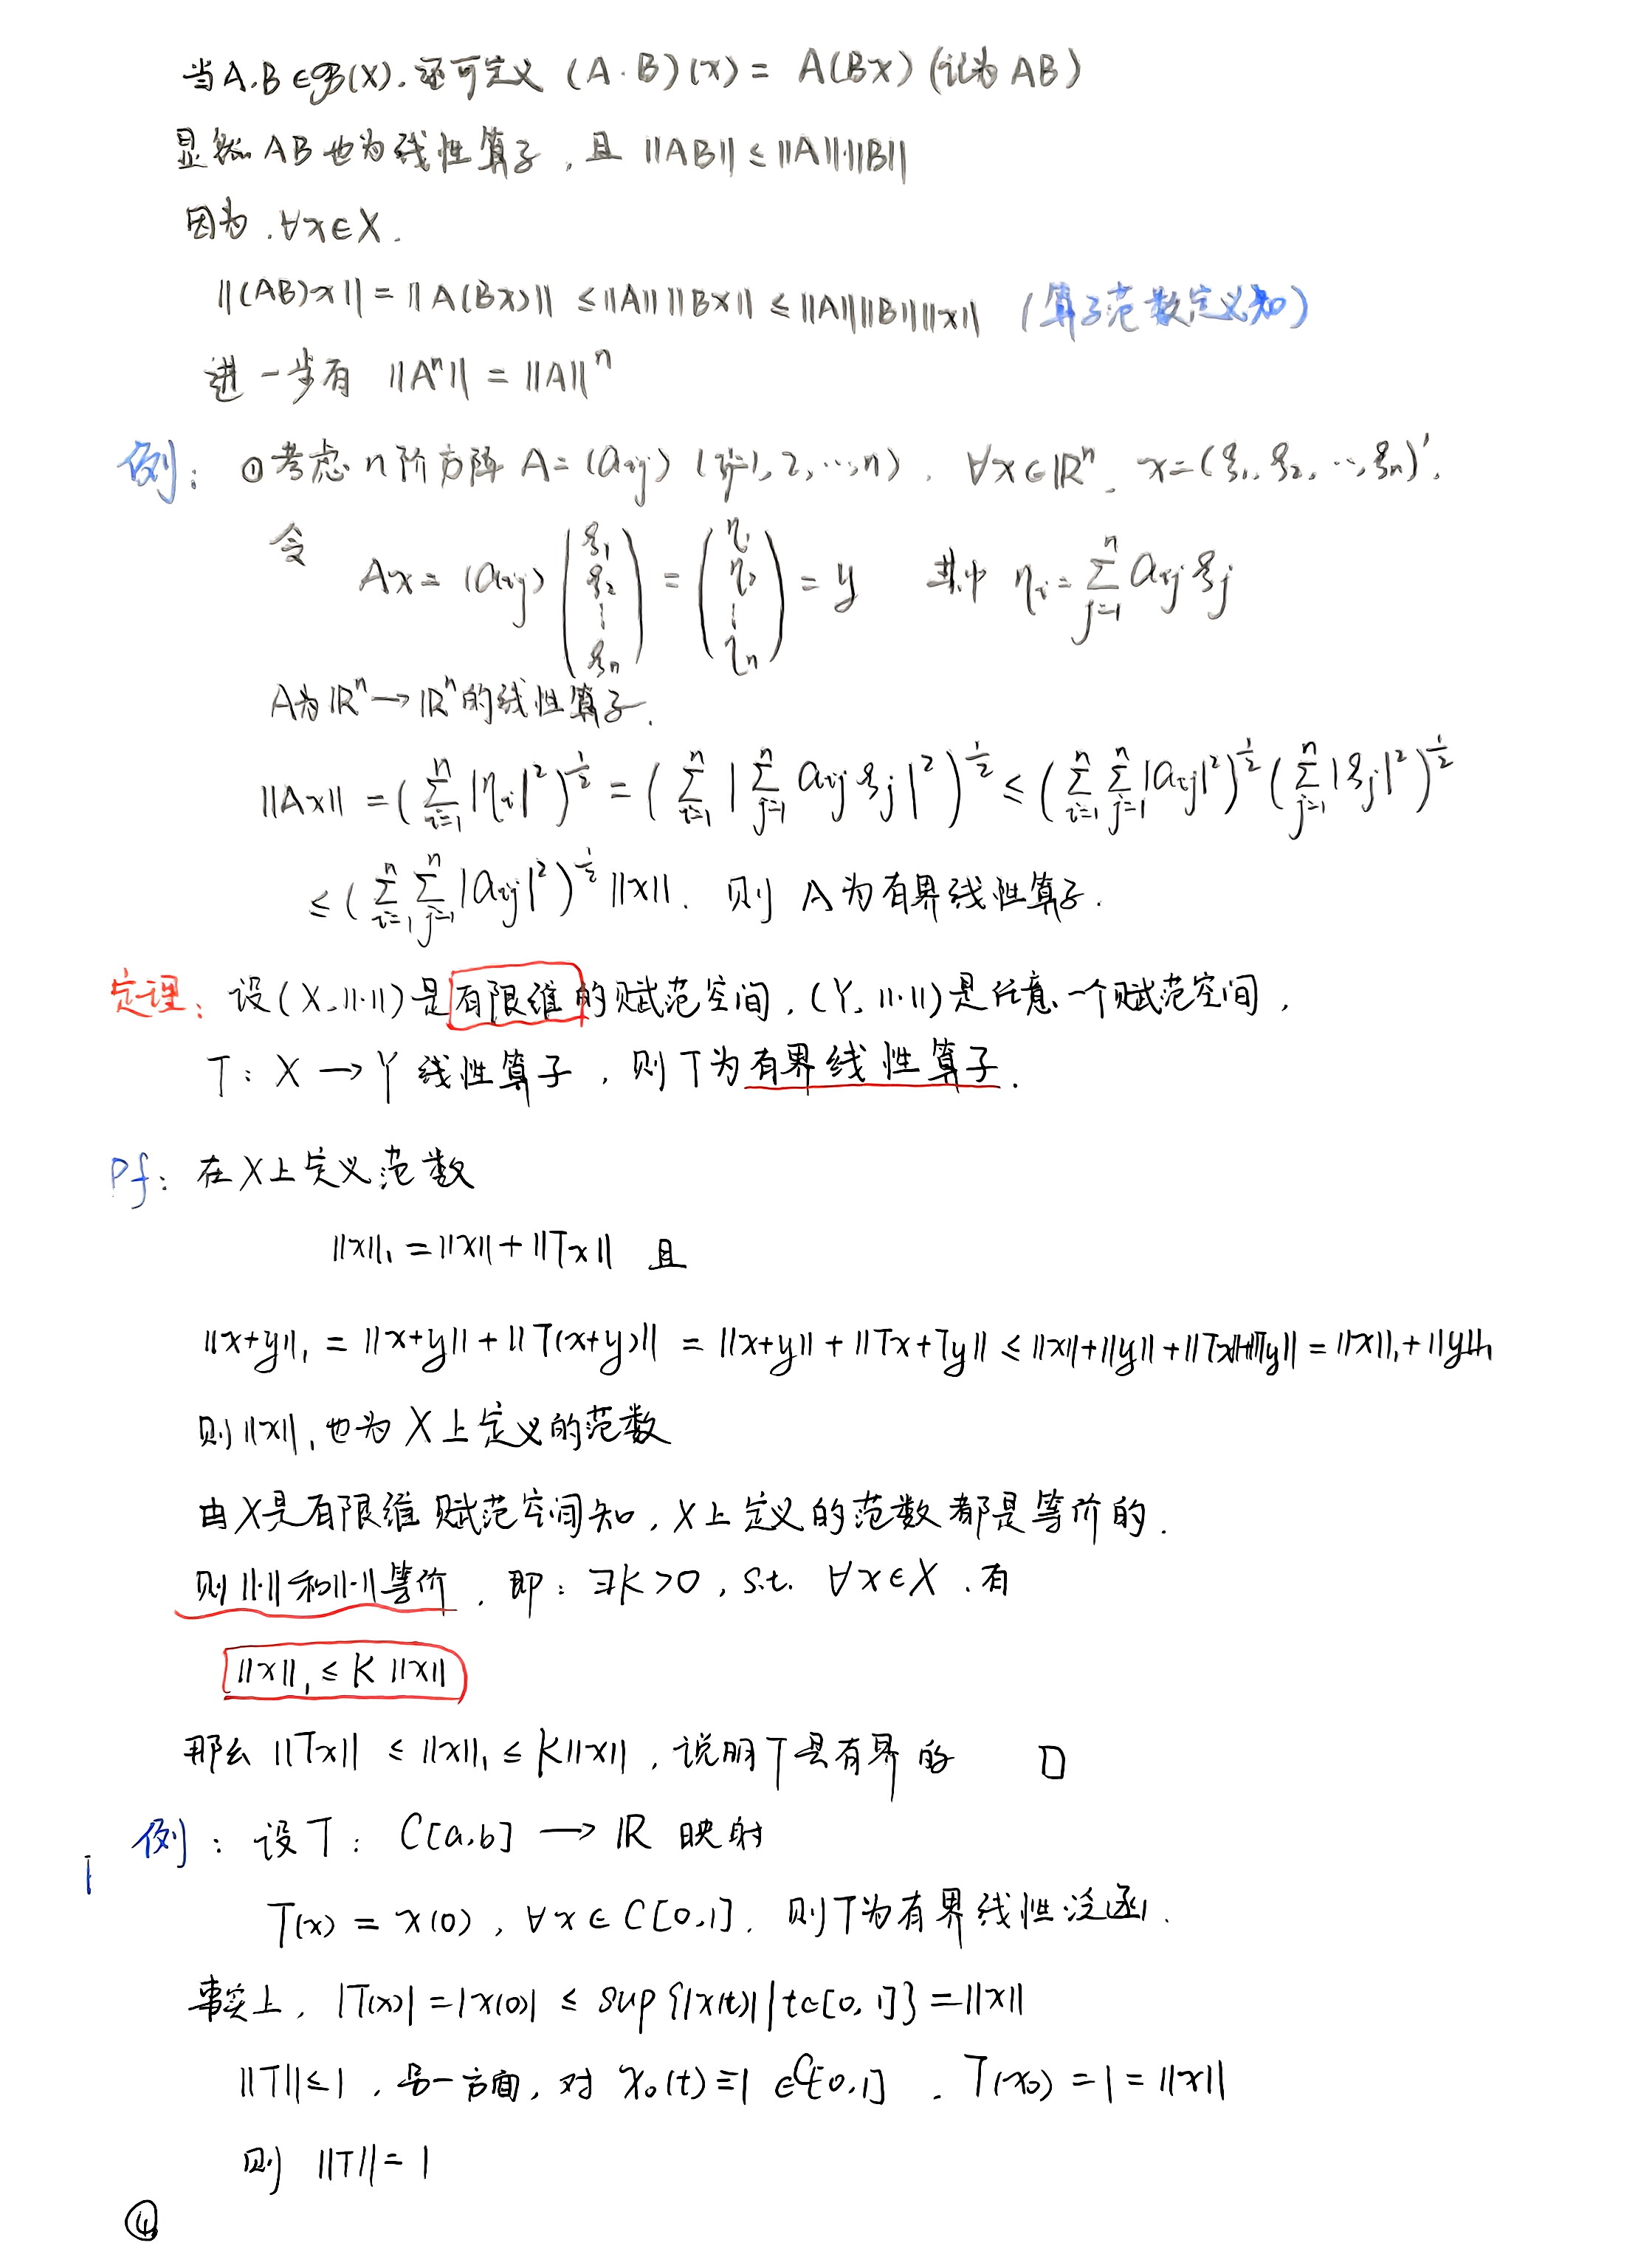 当A.B∈𝓑(X).还可定义 (A·B)(x) = A(Bx) (记为 AB)
显然 AB 也为线性算子, 且 ||AB|| ≤ ||A||·||B||
因为.∀x∈X.
||(AB)x|| = ||A(Bx)|| ≤ ||A|| ||Bx|| ≤ ||A|| ||B|| ||x|| (算子范数定义知)
进一步有 ||Aⁿ|| = ||A||ⁿ
例: ①考虑 n 阶方阵 A = (aᵢⱼ) (ij=1,2,…,n), ∀x∈ℝⁿ. x = (ξ₁, ξ₂, …, ξₙ)′,
令 Ax = (aᵢⱼ) (ξ₁ ξ₂ ⋮ ξₙ) = (η₁ η₂ ⋮ ηₙ) = y 其中 ηᵢ = ∑ⱼ₌₁ⁿ aᵢⱼ ξⱼ
A为 ℝⁿ → ℝⁿ 的线性算子.
||Ax|| = (∑ᵢ₌₁ⁿ |ηᵢ|²)^½ = (∑ᵢ₌₁ⁿ |∑ⱼ₌₁ⁿ aᵢⱼ ξⱼ|²)^½ ≤ (∑ᵢ₌₁ⁿ ∑ⱼ₌₁ⁿ |aᵢⱼ|²)^½ (∑ⱼ₌₁ⁿ |ξⱼ|²)^½
≤ (∑ᵢ₌₁ⁿ ∑ⱼ₌₁ⁿ |aᵢⱼ|²)^½ ||x||. 则 A 为有界线性算子.
定理: 设 (X, ||·||) 是有限维的赋范空间, (Y, ||·||) 是任意一个赋范空间,
T: X → Y 线性算子, 则 T 为有界线性算子.
Pf: 在 X 上定义范数
||x||₁ = ||x|| + ||Tx|| 且
||x+y||₁ = ||x+y|| + ||T(x+y)|| = ||x+y|| + ||Tx+Ty|| ≤ ||x||+||y||+||Tx||+||Ty|| = ||x||₁+||y||₁
则 ||x||₁ 也为 X 上定义的范数
由 X 是有限维赋范空间知, X 上定义的范数都是等价的.
则 ||·|| 和 ||·|| 等价, 即: ∃K>0, s.t. ∀x∈X, 有
||x||₁ ≤ K ||x||
那么 ||Tx|| ≤ ||x||₁ ≤ K||x||, 说明 T 是有界的 □
例: 设 T: C[a,b] → ℝ 映射
T(x) = x(0), ∀x∈C[0,1], 则 T 为有界线性泛函.
事实上, |T(x)| = |x(0)| ≤ sup{|x(t)| | t∈[0,1]} = ||x||
||T|| ≤ 1, 另一方面, 对 x₀(t) ≡ 1 ∈ C[0,1], T(x₀) = 1 = ||x||
则 ||T|| = 1
④